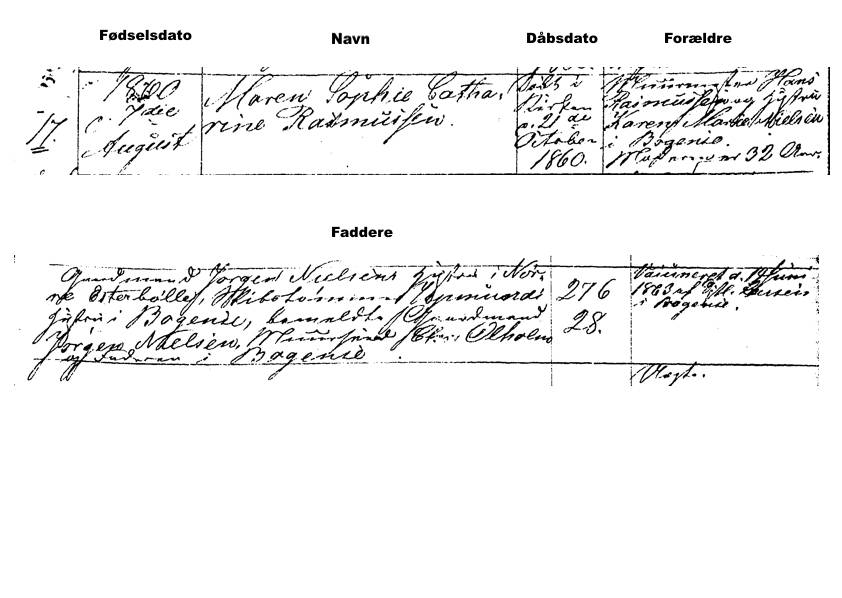 Fødselsdato
Navn
Dåbsdato
Forældre
17.
1860
d. 7die
August
Maren Sophie Catha-
rine Rasmussen.
Døbt i
Kirken
d. 21de
October
1860.
Muurmester Hans
Rasmussen og Hustru
Karen Marie Nielsen
i Bogense.
Moderen er 32 Aar.
Faddere
Gaardmand Jørgen Nielsens Hustru i Nør-
re Esterbølle, Skibstømmer
Hustru i Bogense, bemeldte Gaardmand
Jørgen Nielsen, Muursvend Olholm
og Faderen i Bogense.
276
28.
Vaccineret d. Juni
1863 af
i Bogense.